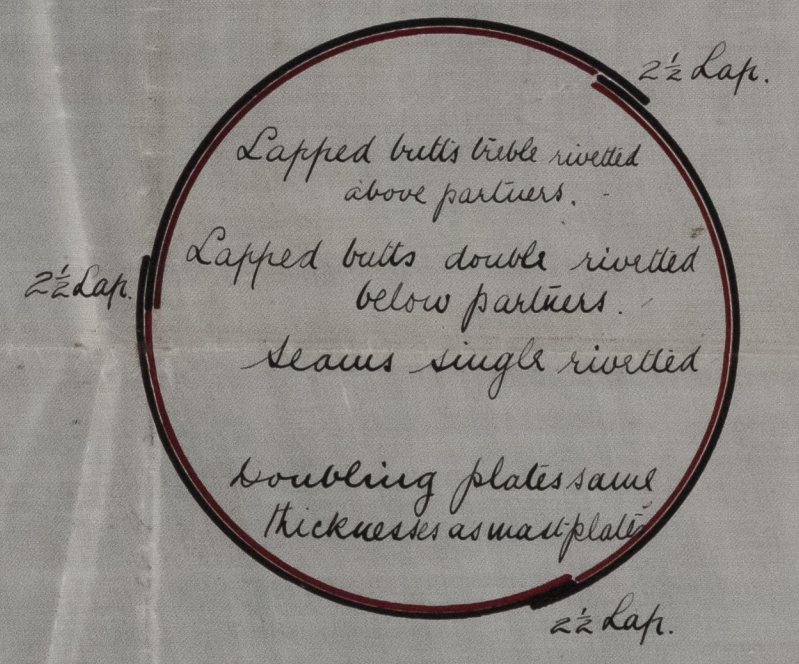 2½ Lap.
Lapped butts treble rivetted
above partners.
Lapped butts double rivetted
below partners.
2½ Lap.
Seams single rivetted
Doubling plates same
thicknesses as mast-plates
2½ Lap.